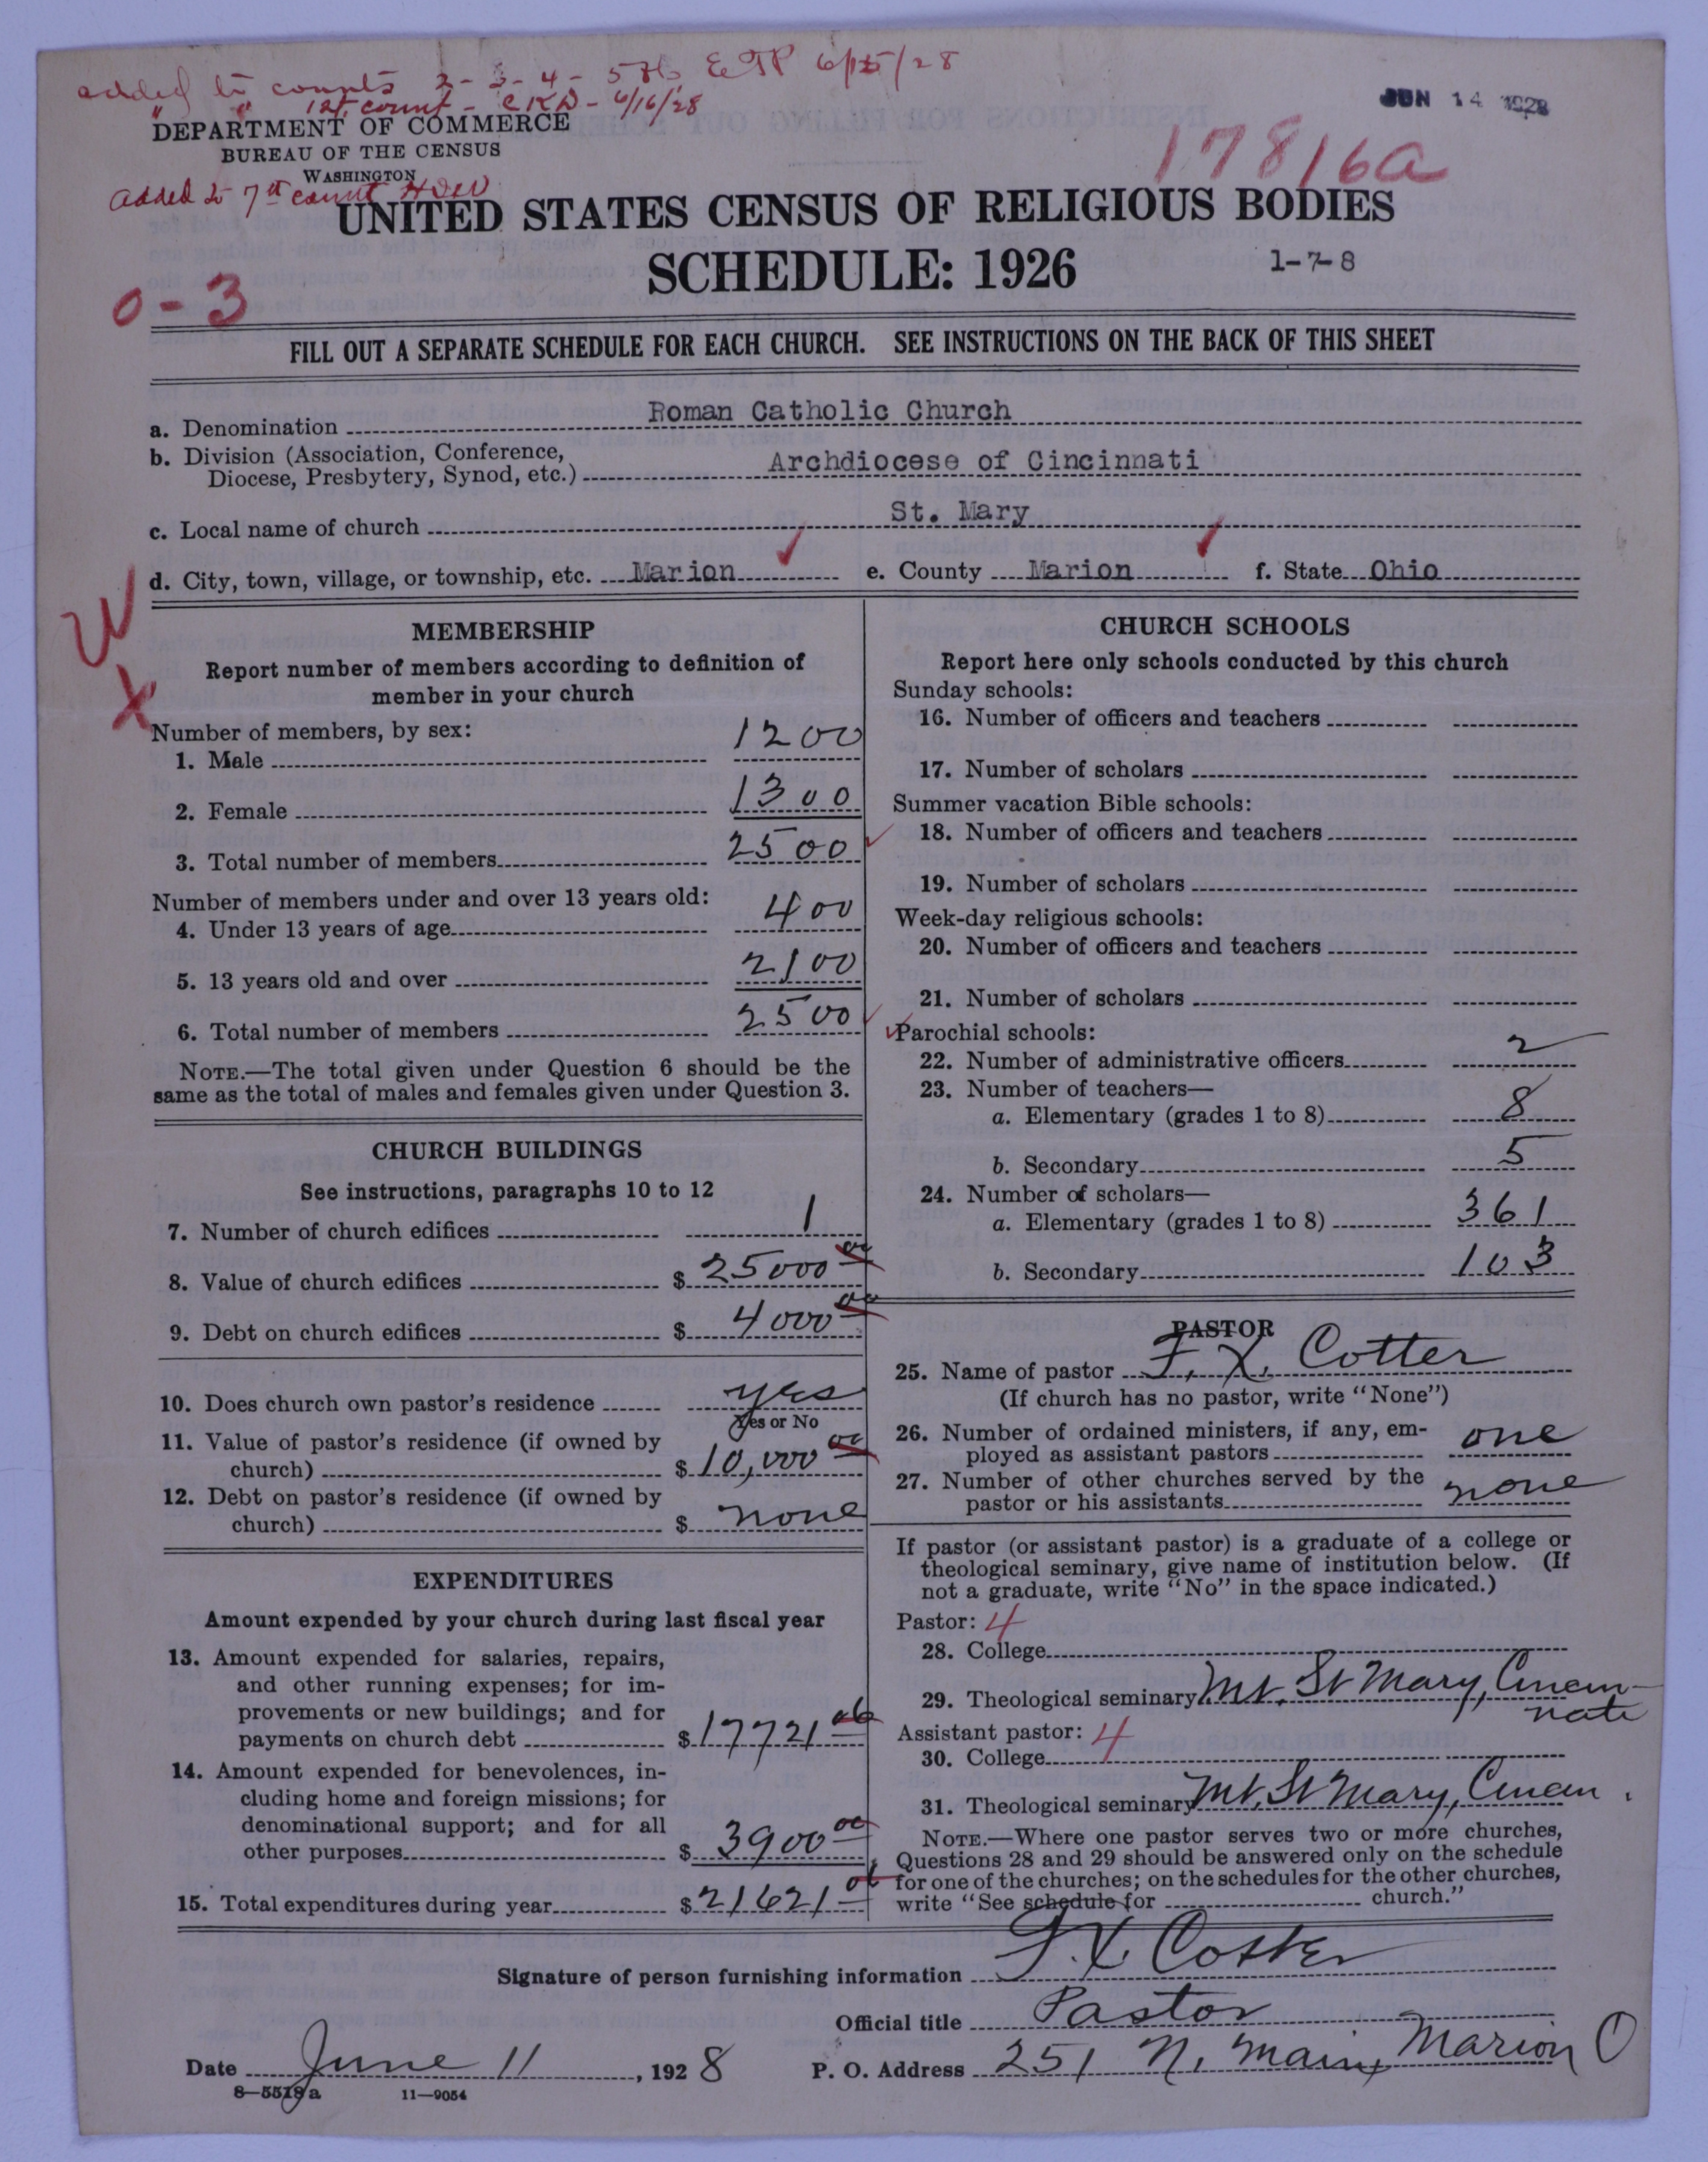 added to counts 2-3-4-5 & 6 EGP 6/15/28
" " 1st count - CKD - 6/16/28
JUN 14 1928
DEPARTMENT OF COMMERCE
BUREAU OF THE CENSUS
WASHINGTON
17816a
Added to 7th count HDW
UNITED STATES CENSUS OF RELIGIOUS BODIES
SCHEDULE: 1926
1-7-8
0-3
FILL OUT A SEPARATE SCHEDULE FOR EACH CHURCH. SEE INSTRUCTIONS ON THE BACK OF THIS SHEET
a. Denomination Roman Catholic Church
b. Division (Association, Conference,
Diocese, Presbytery, Synod, etc.) Archdiocese of Cincinnati
c. Local name of church St. Mary
d. City, town, village, or township, etc. Marion e. County Marion f. State Ohio
W
X
MEMBERSHIP
Report number of members according to definition of
member in your church
Number of members, by sex:
1. Male 1200
2. Female 1300
3. Total number of members 2500
Number of members under and over 13 years old:
4. Under 13 years of age 400
5. 13 years old and over 2100
6. Total number of members 2500
NOTE.—The total given under Question 6 should be the
same as the total of males and females given under Question 3.
CHURCH BUILDINGS
See instructions, paragraphs 10 to 12
7. Number of church edifices 1
8. Value of church edifices $ 25000 00
9. Debt on church edifices $ 4000 00
10. Does church own pastor's residence yes
Yes or No
11. Value of pastor's residence (if owned by
church) $ 10,000 00
12. Debt on pastor's residence (if owned by
church) $ none
EXPENDITURES
Amount expended by your church during last fiscal year
13. Amount expended for salaries, repairs,
and other running expenses; for im-
provements or new buildings; and for
payments on church debt $ 17721 06
14. Amount expended for benevolences, in-
cluding home and foreign missions; for
denominational support; and for all
other purposes $ 3900 00
15. Total expenditures during year $ 21621 06
CHURCH SCHOOLS
Report here only schools conducted by this church
Sunday schools:
16. Number of officers and teachers
17. Number of scholars
Summer vacation Bible schools:
18. Number of officers and teachers
19. Number of scholars
Week-day religious schools:
20. Number of officers and teachers
21. Number of scholars
Parochial schools:
22. Number of administrative officers 2
23. Number of teachers—
a. Elementary (grades 1 to 8) 8
b. Secondary 5
24. Number of scholars—
a. Elementary (grades 1 to 8) 361
b. Secondary 103
PASTOR
25. Name of pastor F. X. Cotter
(If church has no pastor, write "None")
26. Number of ordained ministers, if any, em-
ployed as assistant pastors one
27. Number of other churches served by the
pastor or his assistants none
If pastor (or assistant pastor) is a graduate of a college or
theological seminary, give name of institution below. (If
not a graduate, write "No" in the space indicated.)
Pastor: 4
28. College
29. Theological seminary Mt. St Mary, Cincin-
nati
Assistant pastor: 4
30. College
31. Theological seminary Mt. St Mary, Cincin.
NOTE.—Where one pastor serves two or more churches,
Questions 28 and 29 should be answered only on the schedule
for one of the churches; on the schedules for the other churches,
write "See schedule for church."
Signature of person furnishing information F. X Cotter
Official title Pastor
Date June 11, 1928 P. O. Address 251 N. Main, Marion O
8—5518 a 11—9054